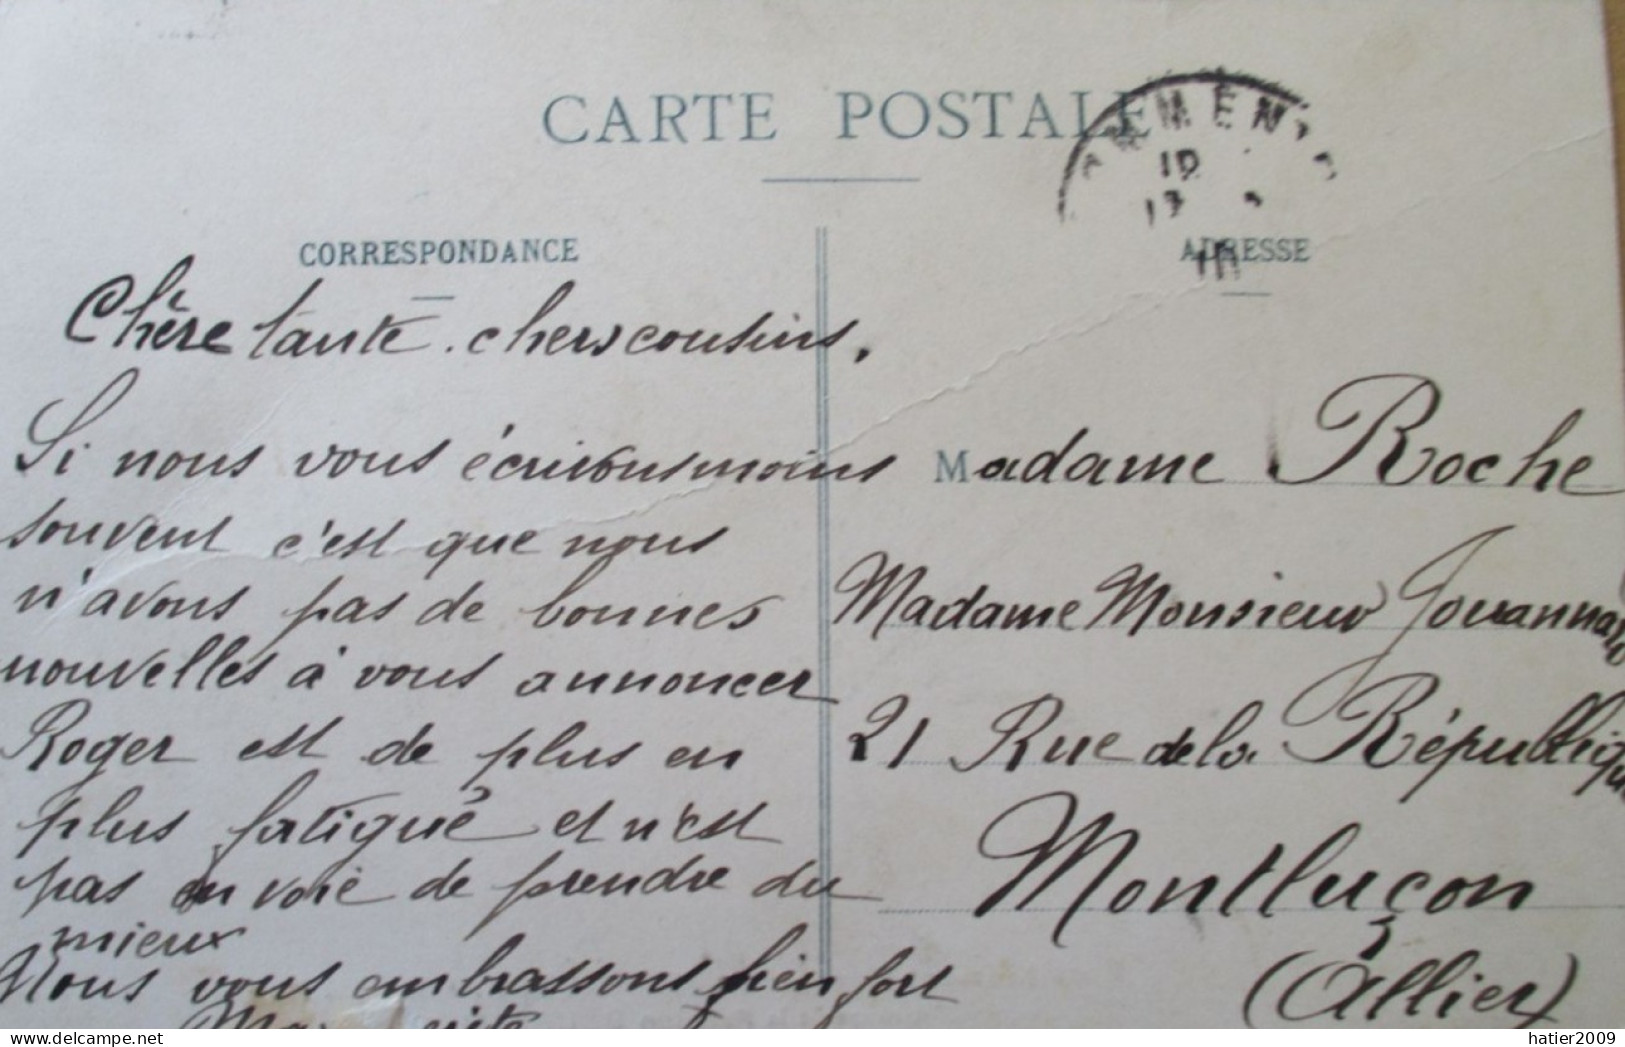 CARTE POSTALE
CORRESPONDANCE
ADRESSE
Chère tante. chers cousins,
Si nous vous écrivons moins
souvent c'est que nous
n'avons pas de bonnes
nouvelles à vous annoncer
Roger est de plus en
plus fatigué et n'est
pas en voie de prendre du
mieux
Nous vous embrassons bien fort
Madame Roche
Madame Monsieur
21 Rue de la République
Montluçon
(Allier)
delcampe.net
hatier2009